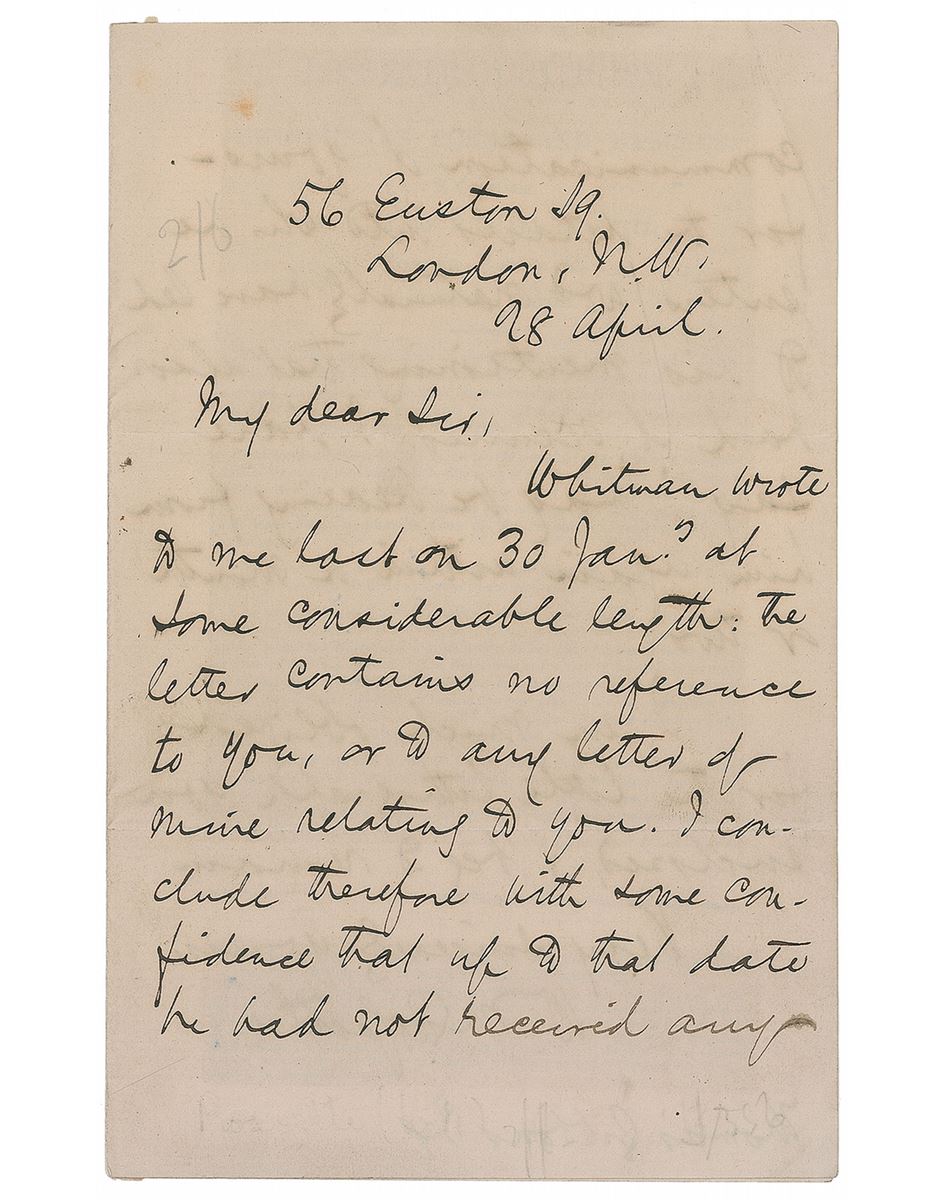 56 Euston Sq.
London, N.W.
28 April.
My dear Sir,
Whitman wrote
to me last on 30 Jan.y at
some considerable length: the
letter contains no reference
to you, or to any letter of
mine relating to you. I con-
clude therefore with some con-
fidence that up to that date
he had not received any
2/6